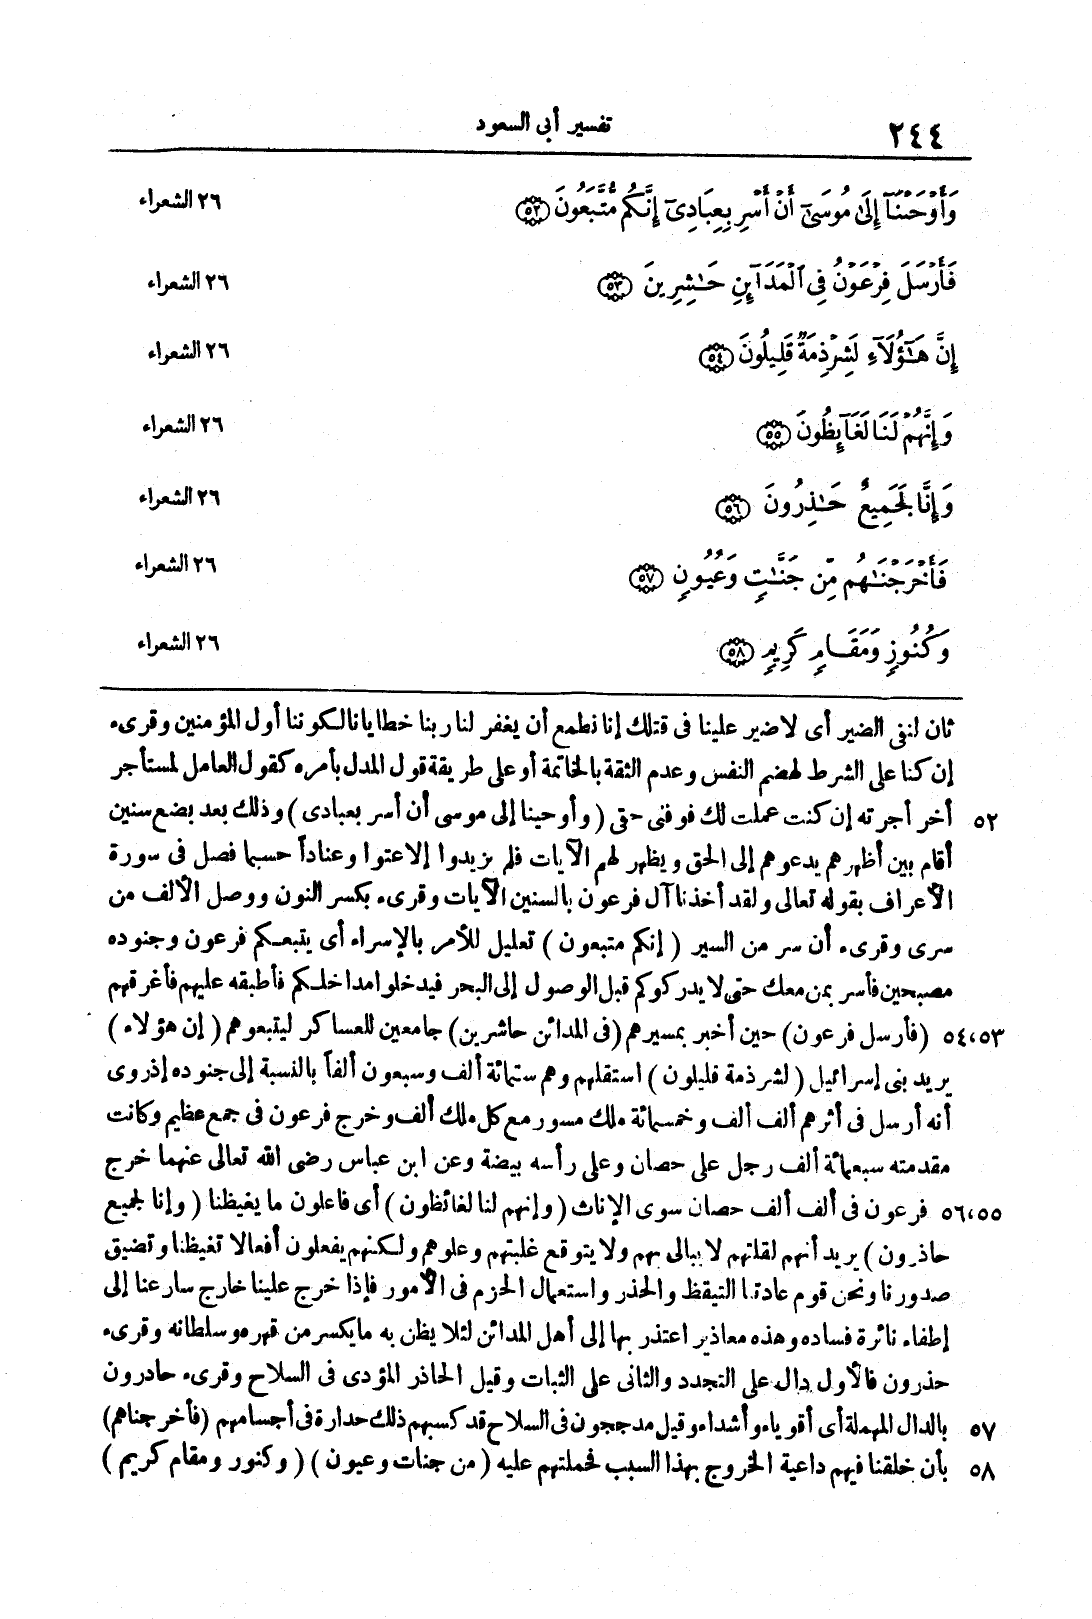 ٢٤٤ تفسير أبى السعود
وَأَوْحَيْنَآ إِلَىٰ مُوسَىٰٓ أَنْ أَسْرِ بِعِبَادِىٓ إِنَّكُم مُّتَّبَعُونَ ﴿٥٢﴾ ٢٦ الشعراء
فَأَرْسَلَ فِرْعَوْنُ فِى ٱلْمَدَآئِنِ حَٰشِرِينَ ﴿٥٣﴾ ٢٦ الشعراء
إِنَّ هَٰٓؤُلَآءِ لَشِرْذِمَةٌ قَلِيلُونَ ﴿٥٤﴾ ٢٦ الشعراء
وَإِنَّهُمْ لَنَا لَغَآئِظُونَ ﴿٥٥﴾ ٢٦ الشعراء
وَإِنَّا لَجَمِيعٌ حَٰذِرُونَ ﴿٥٦﴾ ٢٦ الشعراء
فَأَخْرَجْنَٰهُم مِّن جَنَّٰتٍ وَعُيُونٍ ﴿٥٧﴾ ٢٦ الشعراء
وَكُنُوزٍ وَمَقَامٍ كَرِيمٍ ﴿٥٨﴾ ٢٦ الشعراء
ثان لنفى الضير أى لا ضير علينا فى قتلك إنا نطمع أن يغفر لنا ربنا خطايانا لكوننا أول المؤمنين وقرىء
إن كنا على الشرط لهضم النفس وعدم الثقة بالخاتمة أو على طريقة قول المدل بأمره كقول العامل لمستأجر
٥٢ أخر أجرته إن كنت عملت لك فوفنى حقى (وأوحينا إلى موسى أن أسر بعبادى) وذلك بعد بضع سنين
أقام بين أظهرهم يدعوهم إلى الحق ويظهر لهم الآيات فلم يزيدوا إلا عتوا وعناداً حسبما فصل فى سورة
الأعراف بقوله تعالى ولقد أخذنا آل فرعون بالسنين الآيات وقرىء بكسر النون ووصل الألف من
سرى وقرىء أن سر من السير (إنكم متبعون) تعليل للأمر بالإسراء أى يتبعكم فرعون وجنوده
مصبحين فأسر بمن معك حتى لا يدركوكم قبل الوصول إلى البحر فيدخلوا مداخلكم فأطبقه عليهم فأغرقهم
٥٤،٥٣ (فأرسل فرعون) حين أخبر بمسيرهم (فى المدائن حاشرين) جامعين للعساكر ليتبعوهم (إن هؤلاء)
يريد بنى إسرائيل (لشرذمة قليلون) استقلهم وهم ستمائة ألف وسبعون ألفاً بالنسبة إلى جنوده إذ روى
أنه أرسل فى أثرهم ألف ألف وخمسمائة ملك مسور مع كل ملك ألف وخرج فرعون فى جمع عظيم وكانت
مقدمته سبعمائة ألف رجل على حصان وعلى رأسه بيضة وعن ابن عباس رضى الله تعالى عنهما خرج
٥٦،٥٥ فرعون فى ألف ألف حصان سوى الإناث (وإنهم لنا لغائظون) أى فاعلون ما يغيظنا (وإنا لجميع
حاذرون) يريد أنهم لقلتهم لا يبالى بهم ولا يتوقع غلبتهم وعلوهم ولكنهم يفعلون أفعالا تغيظنا وتضيق
صدورنا ونحن قوم عادتنا التيقظ والحذر واستعمال الحزم فى الأمور فإذا خرج علينا خارج سارعنا إلى
إطفاء نائرة فساده وهذه معاذير اعتذر بها إلى أهل المدائن لئلا يظن به ما يكسر من قهره وسلطانه وقرىء
حذرون فالأول دال على التجدد والثانى على الثبات وقيل الحاذر المؤدى فى السلاح وقرىء حادرون
٥٧ بالدال المهملة أى أقوياء وأشداء وقيل مدججون فى السلاح قد كسبهم ذلك حدارة فى أجسامهم (فأخرجناهم)
٥٨ بأن خلقنا فيهم داعية الخروج بهذا السبب فحملتهم عليه (من جنات وعيون) (وكنوز ومقام كريم)